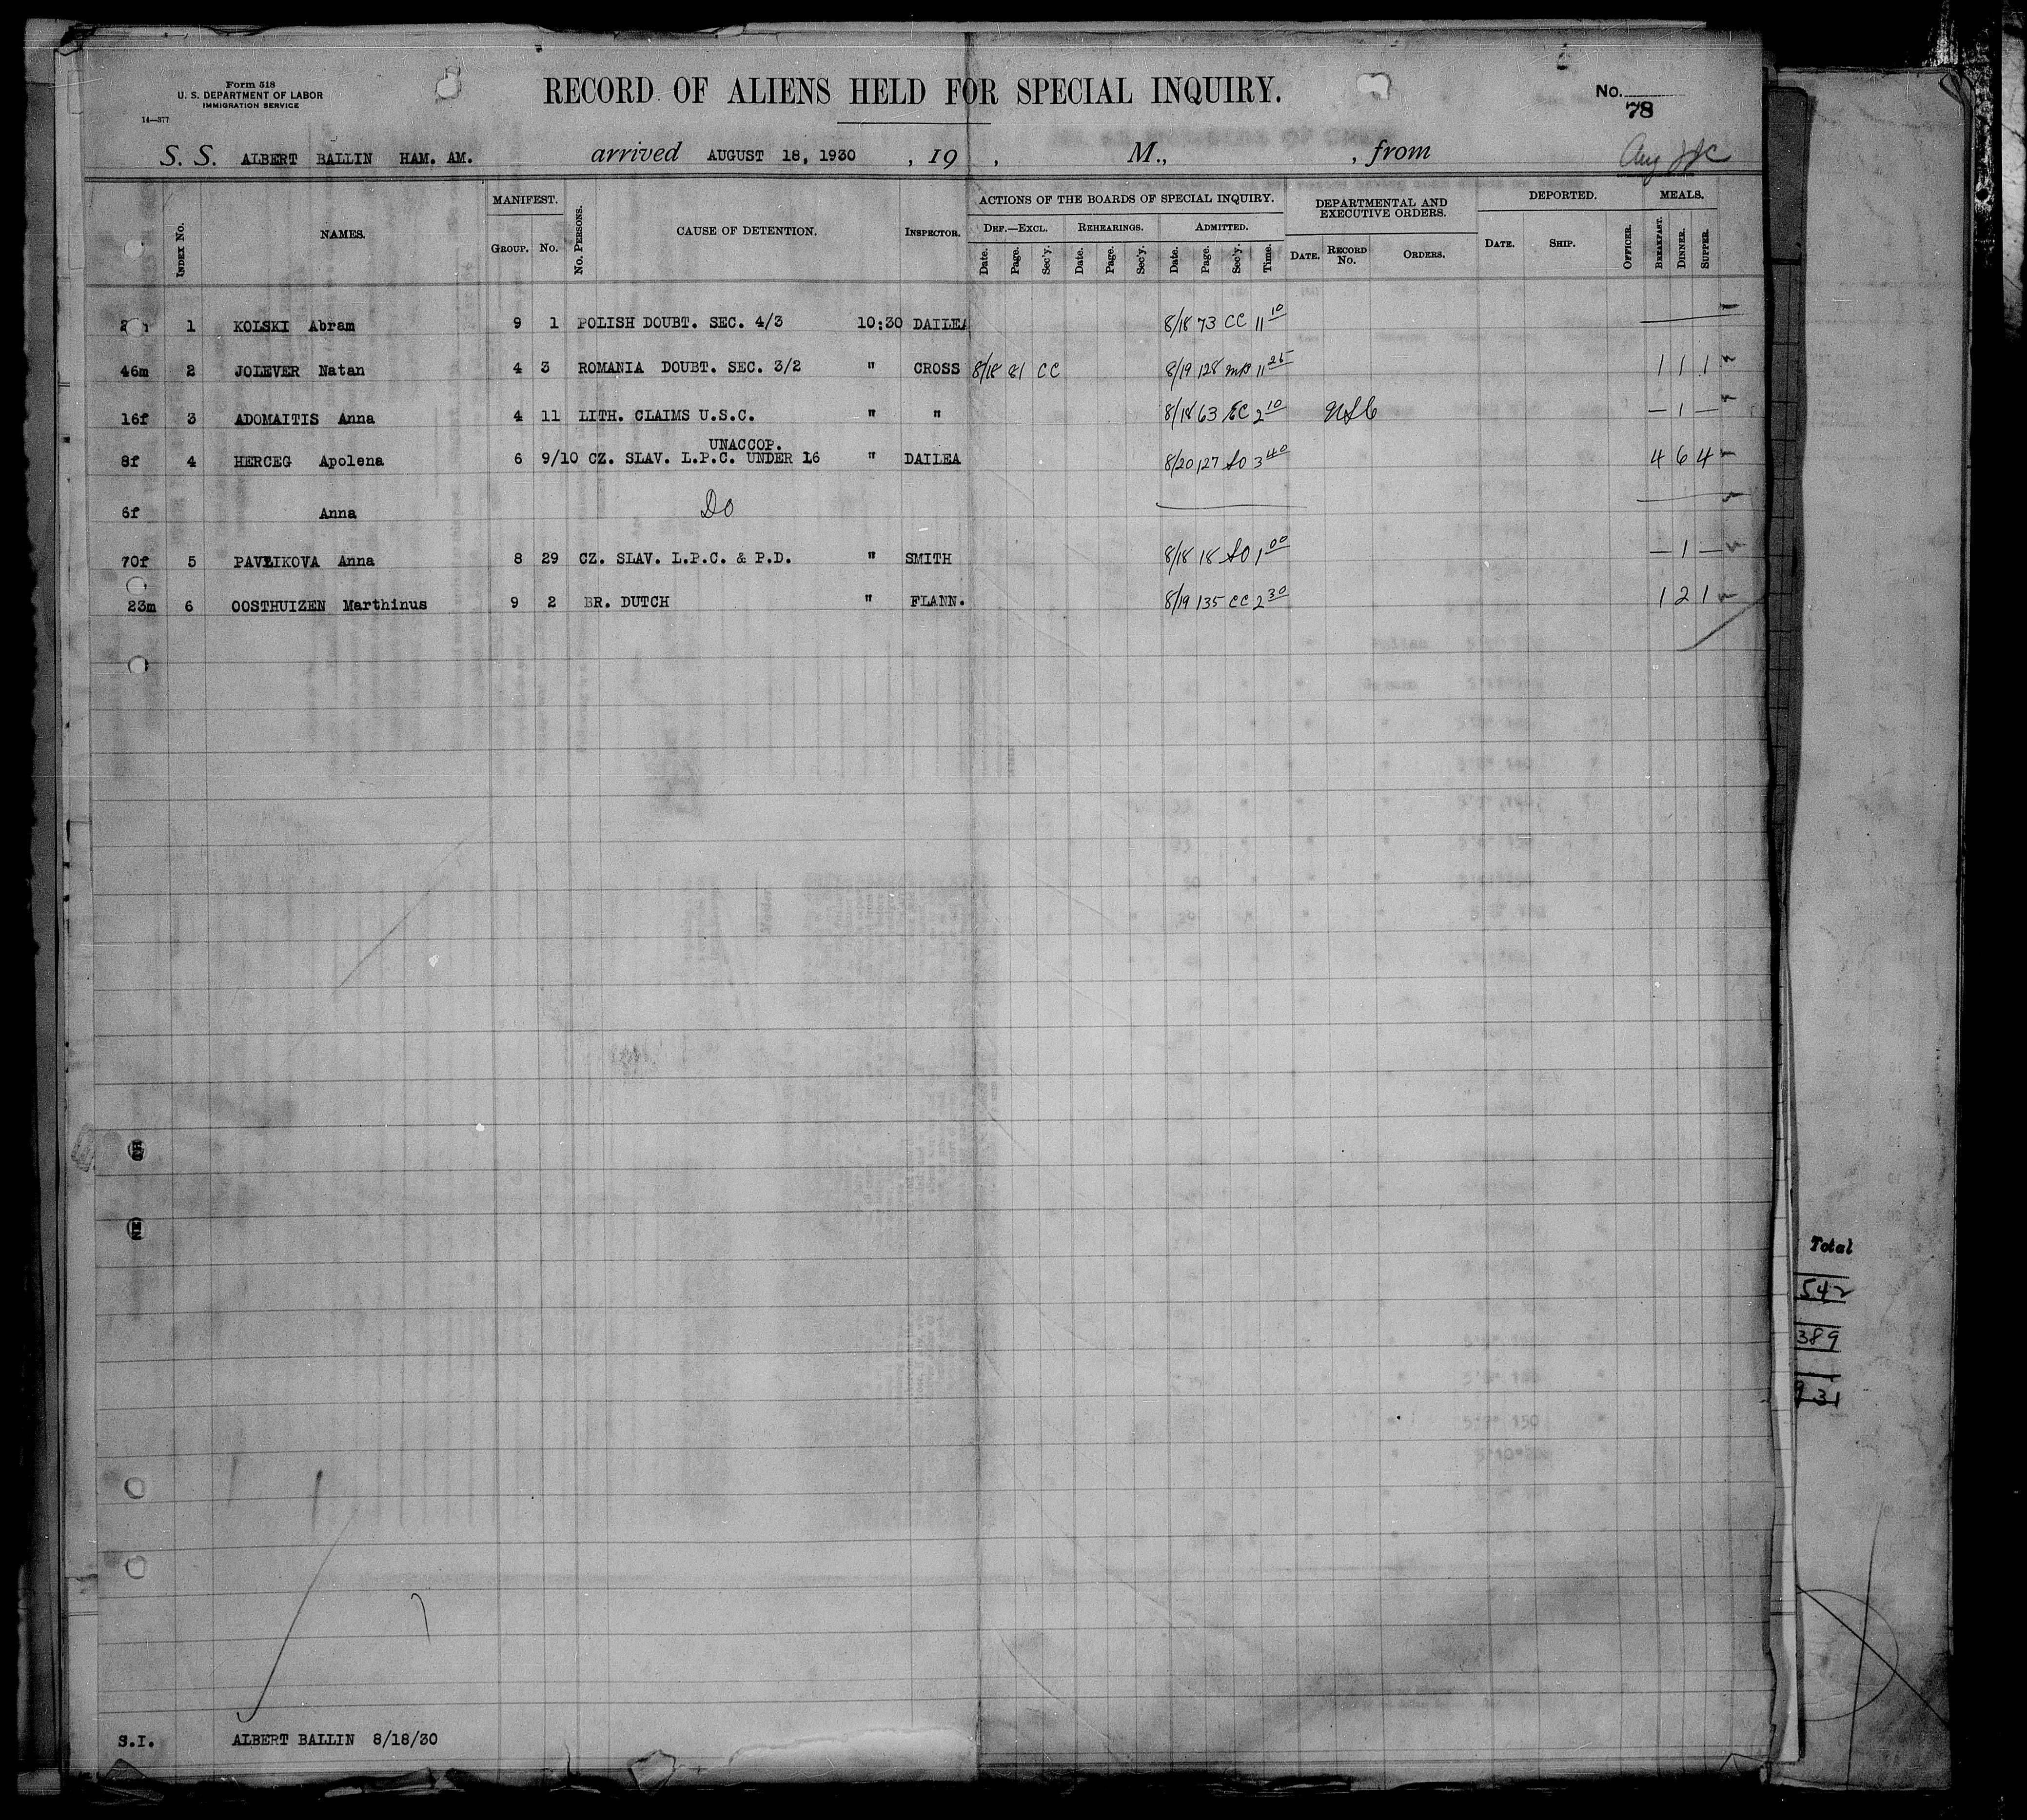 Form 518
U. S. DEPARTMENT OF LABOR
IMMIGRATION SERVICE
14—377
RECORD OF ALIENS HELD FOR SPECIAL INQUIRY.
No. 78
S. S. ALBERT BALLIN HAM. AM. arrived AUGUST 18, 1930 , 19 , M., , from
Aug
INDEX No. NAMES. MANIFEST. GROUP. No. No. PERSONS. CAUSE OF DETENTION. INSPECTOR. ACTIONS OF THE BOARDS OF SPECIAL INQUIRY. DEPARTMENTAL AND EXECUTIVE ORDERS. DEPORTED. MEALS.
DEF.—EXCL. REHEARINGS. ADMITTED.
Date. Page. Sec'y. Date. Page. Sec'y. Date. Page. Sec'y. Time. DATE. RECORD No. ORDERS. DATE. SHIP. OFFICER. BREAKFAST. DINNER. SUPPER.
1 KOLSKI Abram 9 1 POLISH DOUBT. SEC. 4/3 10:30 DAILEA 8/18 73 CC 11 10 —
46m 2 JOLEVER Natan 4 3 ROMANIA DOUBT. SEC. 3/2 " CROSS 8/18 81 CC 8/19 128 11 25 1 1 1
16f 3 ADOMAITIS Anna 4 11 LITH. CLAIMS U.S.C. " " 8/18 63 EC 2 10 USC — 1 —
UNACCOP.
8f 4 HERCEG Apolena 6 9/10 CZ. SLAV. L.P.C. UNDER 16 " DAILEA 8/20 127 SO 3 40 4 6 4
6f Anna Do
70f 5 PAVLIKOVA Anna 8 29 CZ. SLAV. L.P.C. & P.D. " SMITH 8/18 18 SO 1 00 — 1 —
23m 6 OOSTHUIZEN Marthinus 9 2 BR. DUTCH " FLANN. 8/19 135 CC 2 30 1 2 1
Total
542
389
931
S.I. ALBERT BALLIN 8/18/30